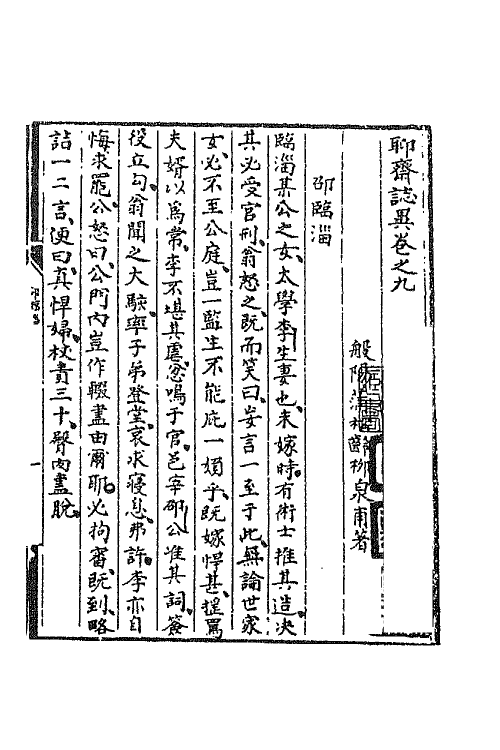 聊齋誌異卷之九
般陽蒲松齡柳泉甫著
邵臨淄
臨淄某公之女太學李生妻也未嫁時有術士推其造决
其必受官刑翁怒之既而笑曰妄言一至于此無論世家
女必不至公庭豈一監生不能庇一婦乎既嫁悍甚捶罵
夫婿以為常李不堪其虐忿鳴于官邑宰邵公准其詞簽
役立勾翁聞之大駭率子弟登堂哀求寢息弗許李亦自
悔求罷公怒曰公門內豈作輟盡由爾耶必拘審既到略
詰一二言便曰真悍婦杖責三十臀肉盡脫